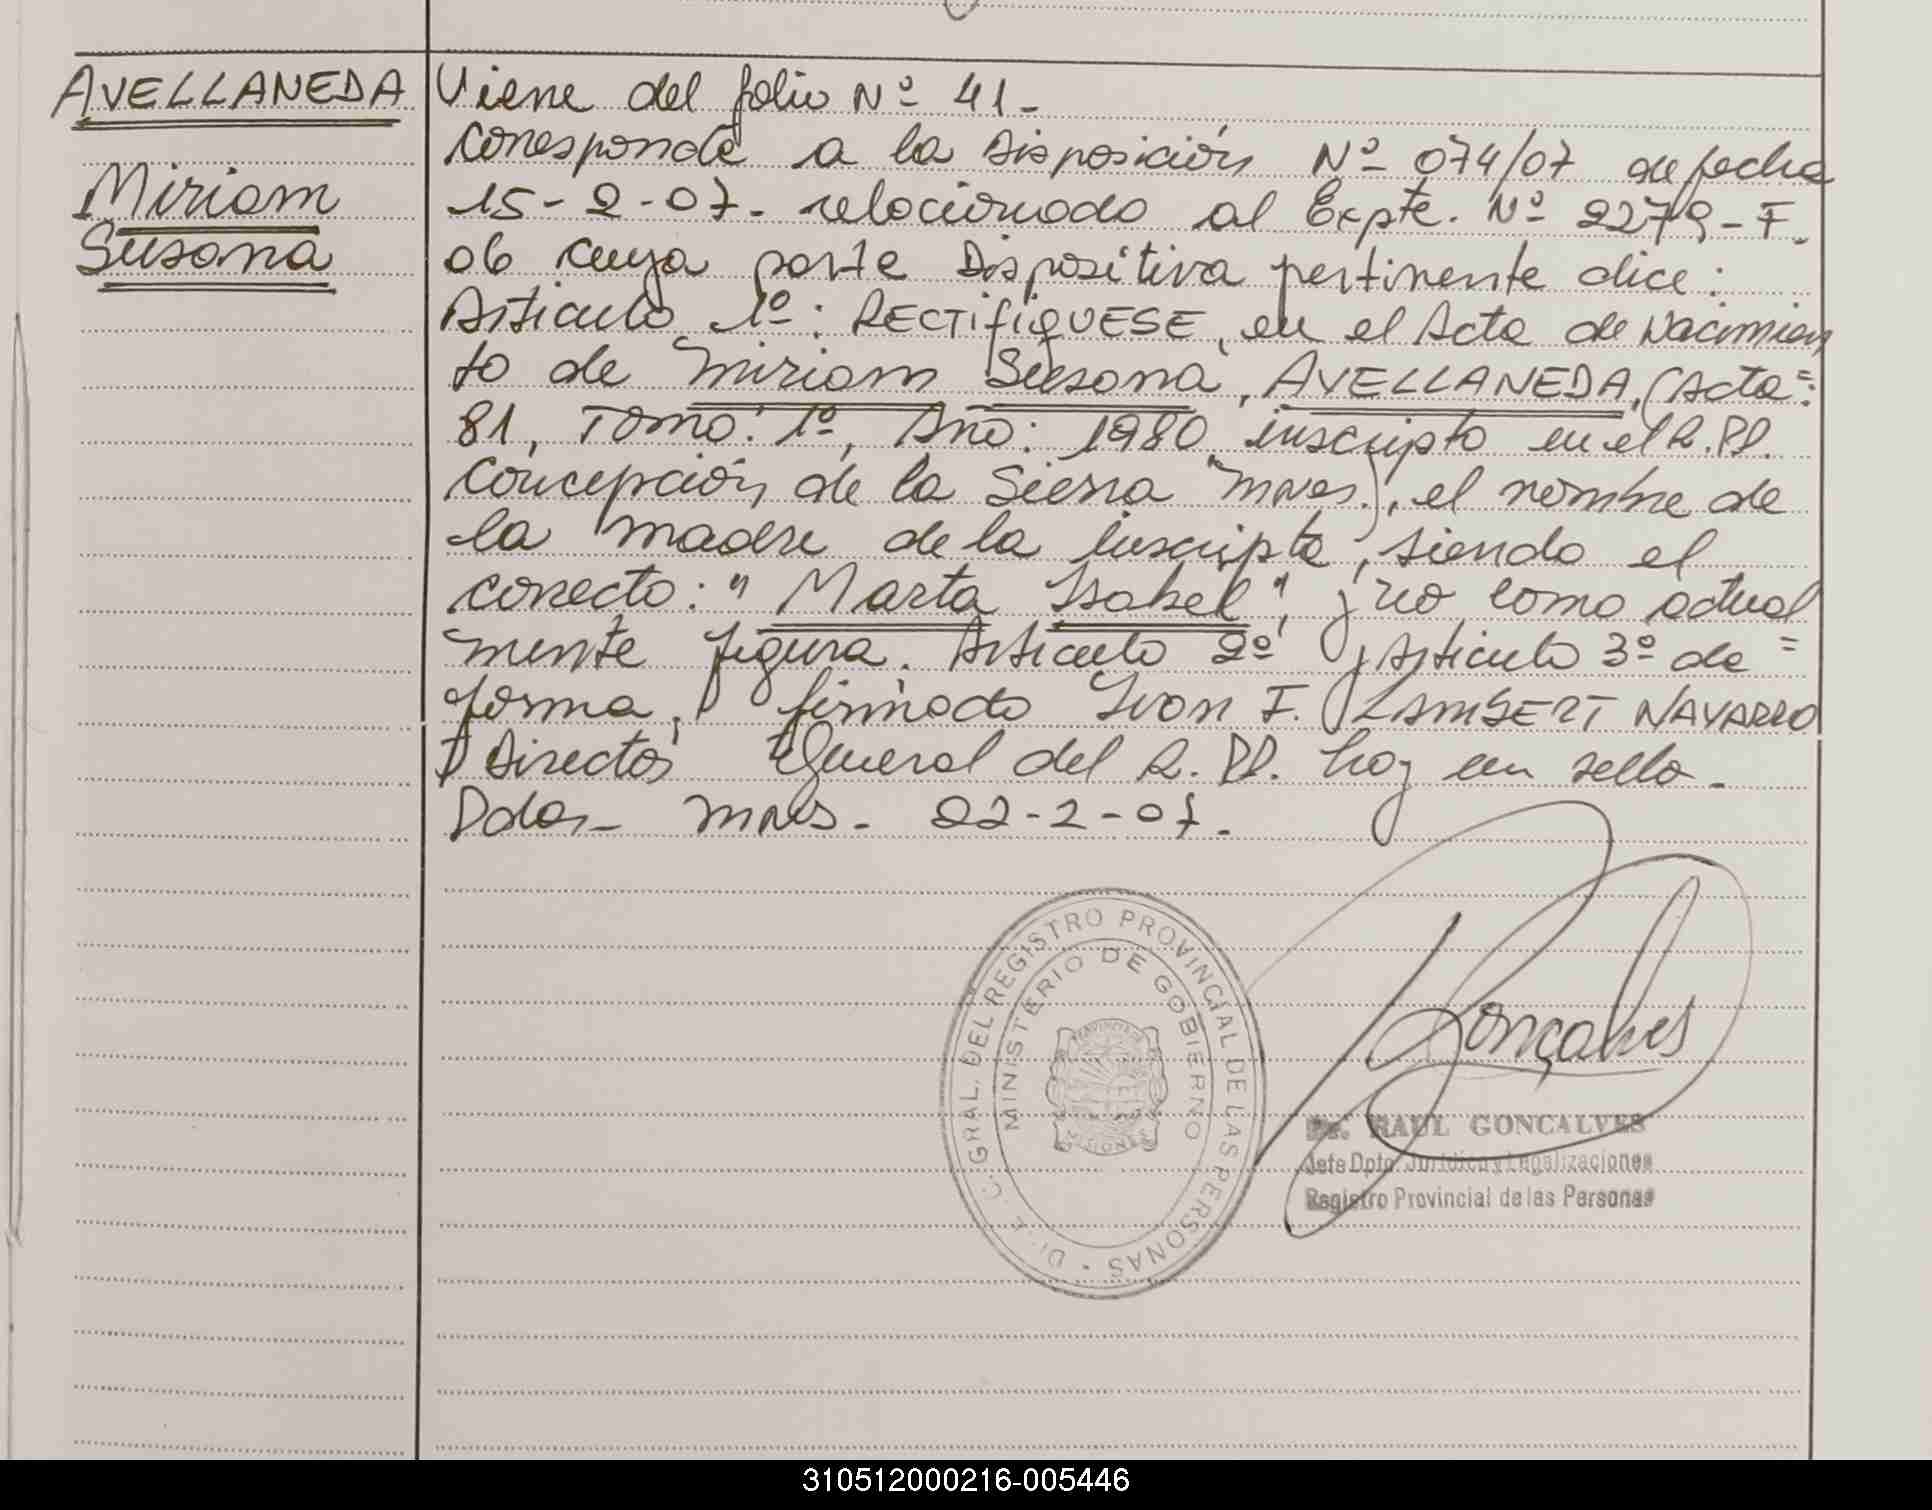 AVELLANEDA
Miriam
Susana
Viene del folio Nº 41-
corresponde a la Disposición Nº 074/07 de fecha
15-2-07- relacionado al Expte. Nº 2279-F-
06 cuya parte Dispositiva pertinente dice:
Articulo 1º: RECTIFIQUESE, en el Acta de Nacimien
to de Miriam Susana, AVELLANEDA, (Acta=
81, Tomo: 1º, Año: 1980 inscripto en el R.PP.
Concepción de la Sierra Mnes.), el nombre de
la madre de la inscripta, siendo el
correcto: "Marta Isabel", y no como actual
mente figura. Articulo 2º y Articulo 3º de =
forma, firmado Ivon F. LAMBERT NAVARRO
Director General del R. PP. hay un sello-
Pdas- Mnes- 22-2-07-
DIRECC. GRAL. DEL REGISTRO PROVINCIAL DE LAS PERSONAS
MINISTERIO DE GOBIERNO
PROVINCIA DE
MISIONES
Goncalves
Dr. RAUL GONCALVES
Jefe Dpto. Jurídico y Legalizaciones
Registro Provincial de las Personas
310512000216-005446